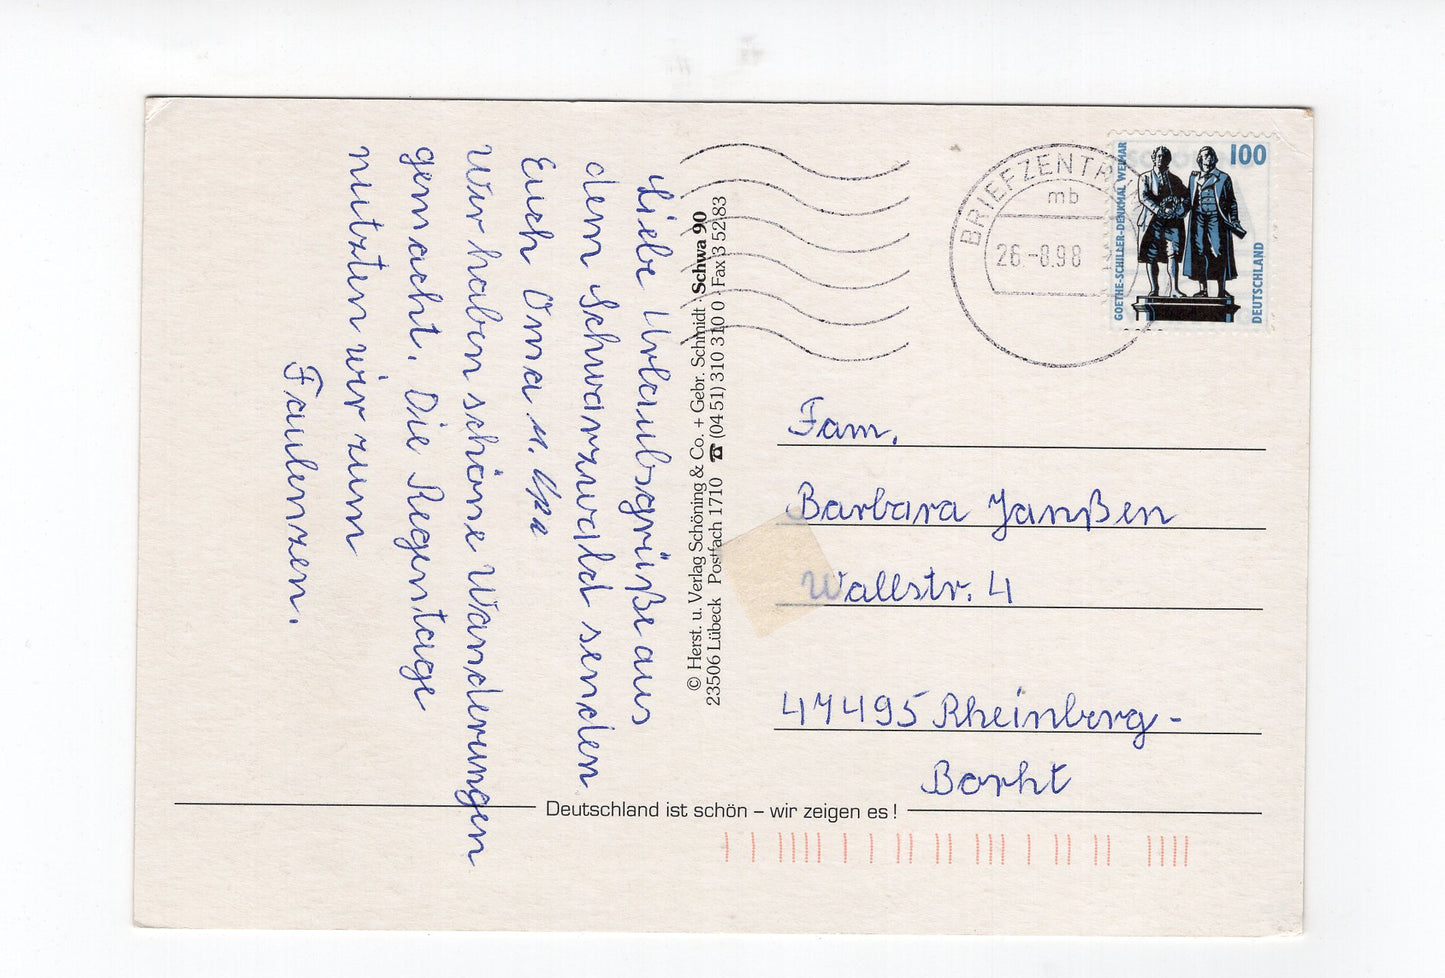 Liebe Urlaubsgrüße aus
dem Schwarzwald senden
Euch Oma u. Opa
Wir haben schöne Wanderungen
gemacht. Die Regentage
nutzten wir zum
Faulenzen.
© Herst. u. Verlag Schöning & Co. + Gebr. Schmidt · Schwa 90
23506 Lübeck Postfach 1710 ☎ (04 51) 310 310 0 · Fax 3 52 83
BRIEFZENTR
mb
26.-8.98
100
GOETHE-SCHILLER-DENKMAL WEIMAR
DEUTSCHLAND
Fam.
Barbara Janßen
Wallstr. 4
47495 Rheinberg-
Borht
Deutschland ist schön – wir zeigen es !